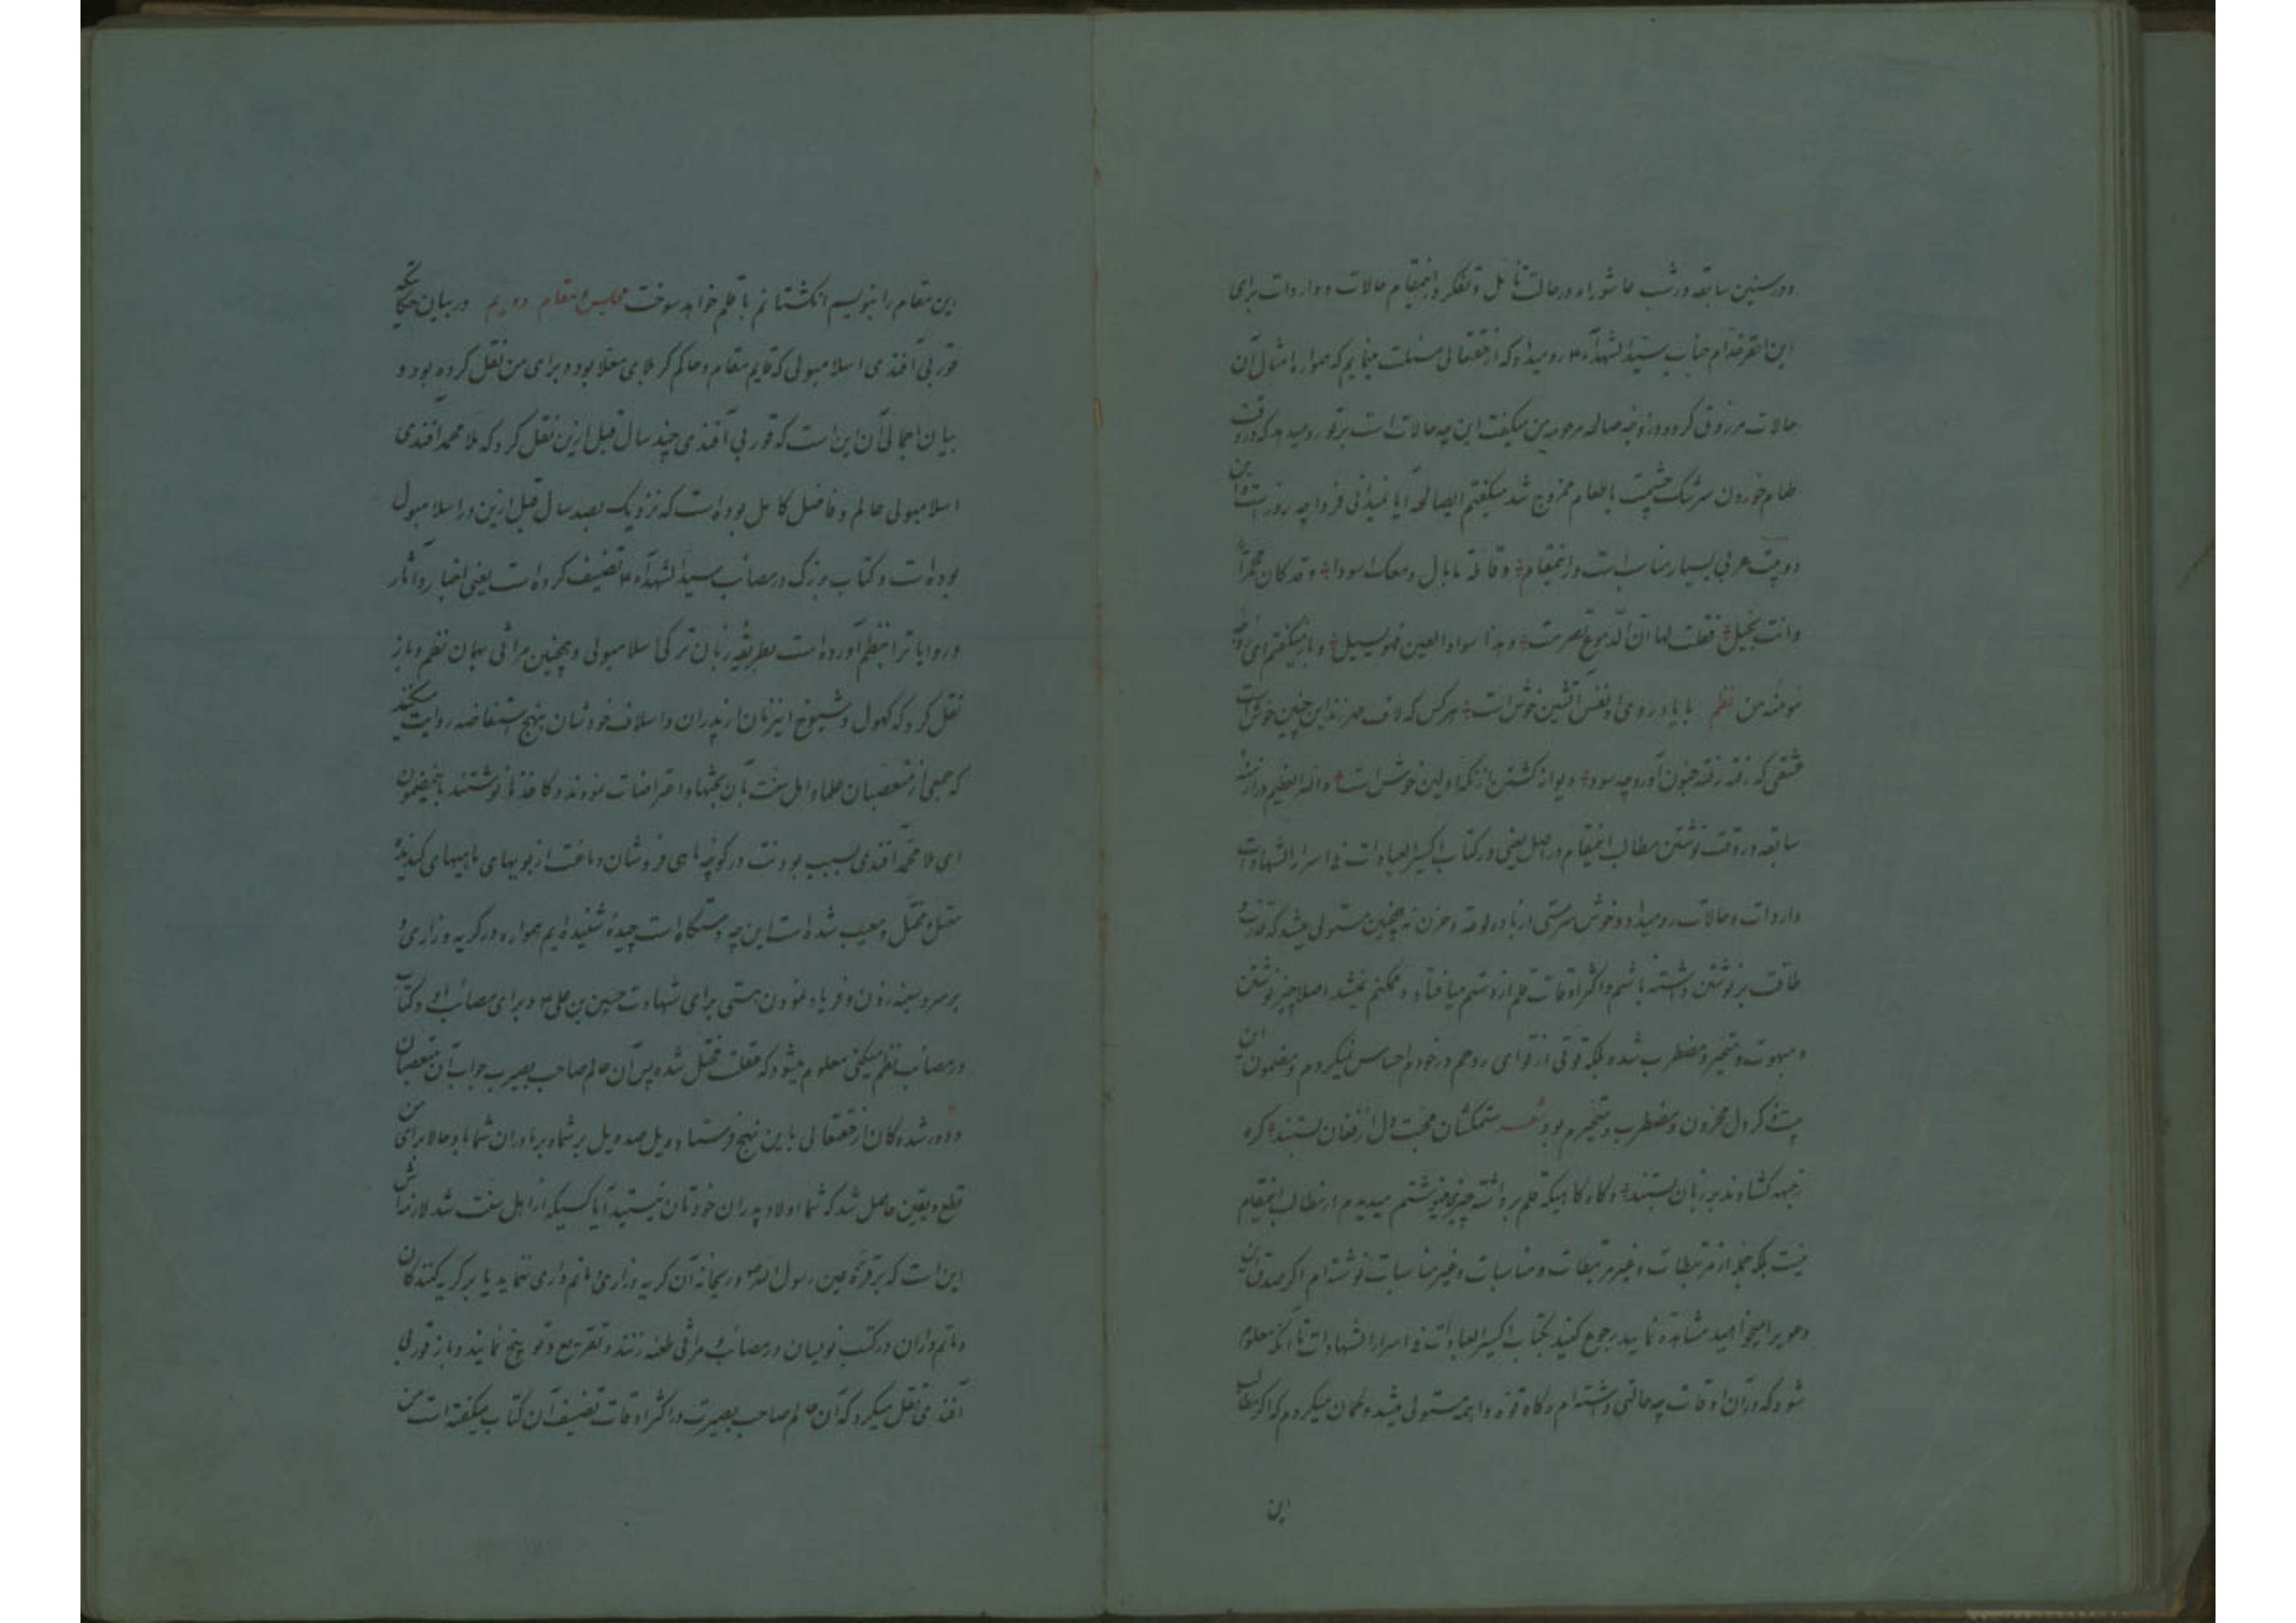 ودر سنین سابقه در شب عاشوراء در حالت تأمل وتفکر در اینمقام حالات و واردات برای
این احقر خدام جناب سید الشهداء ع رو میداد که از حقتعالی مسئلت مینمایم که همواره بامثال آن
حالات مرزوق کرده و زوجه صالحه مرحومه من میگفت این چه حالات است بر تو رو میدهد که در وقت
طعام خوردن سرشک چشمت با طعام ممزوج شد میگفتم ایصالحه آیا نمیدانی فردا چه روز است و این
دو بیت عربی بسیار مناسب است در اینمقام وقائلة ما بال دمعک اسودا وقد کان محمرا
وانت نحیل فقلت لها ان الدموع تصرمت وهذا سواد العین فهو یسیل و باز میگفتم ای زوجه
مؤمنه من نظم با یاد روی او نفس آتشین خوش است هر کس که لاف مهر زند این چنین خوش است
عشقی که رفته رفته جنون آورد چه سود دیوانه گشتن از نگه اولین خوش است والله العظیم در ازمنه
سابقه در وقت نوشتن مطالب اینمقام در اصل یعنی در کتاب اکسیر العبادات فی اسرار الشهادات
واردات و حالات رو میداد و خوش سرمستی از باده لوعه و حزن نه چنین مستولی میشد که قدرت و
طاقت بر نوشتن داشته باشم و اکثر اوقات قلم از دستم میافتاد و ممکنم نمیشد اصلا چیز نوشتن
و مبهوت و متحیر و مضطرب شده بلکه قوتی از قوای روحم در خودم احساس نمیکردم و مضمون این
بیت ذکر دل محزون و مضطرب و متحیرم بود شعر ستمکشان محبت دل از فغان بستند گره
ز جبهه گشادند بر زبان بستند و گاه گاهیکه قلم برداشته چیزی مینوشتم میدیدم از مطالب اینمقام
نیست بلکه جمله از مرتبطات و غیر مرتبطات و مناسبات و غیر مناسبات نوشته‌ام اگر صدق این
دعویرا میخواهید مشاهده نمایید رجوع کنید بکتاب اکسیر العبادات فی اسرار الشهادات تا آنکه معلوم
شود که در آن اوقات چه حالتی داشته‌ام و گاه قوه واهمه مستولی میشد و گمان میکردم که اگر مطالب
این
این مقام را بنویسم انگشتانم با قلم خواهد سوخت مجلس و مقام دویم در بیان حکایتیکه
قوربی آفندی اسلامبولی که قایم مقام و حاکم کربلای معلا بود و برای من نقل کرده بود و
بیان اجمالی آن این است که قوربی آفندی چند سال قبل ازین نقل کرد که ملا محمد افندی
اسلامبولی عالم و فاضل کامل بوده است که نزدیک بصد سال قبل ازین در اسلامبول
بوده است و کتاب بزرگ در مصائب سید الشهداء ع تصنیف کرده است یعنی اخبار و آثار
و روایاترا بنظم آورده است بطریقه زبان ترکی اسلامبولی و همچنین مراثی بهمان نظم و باز
نقل کرد که کهول و شیوخ این زمان از پدران و اسلاف خودشان بنهج استفاضه روایت میکنند
که جمعی از متعصبان علماء اهل سنت بآن بحثها و اعتراضات نمودند و کاغذها نوشتند باینمضمون
ای ملا محمد آفندی بسبب بودنت در کوچه ماهی فروشان دماغت از بویهای ماهیهای گندیده
عقل مختل و معیب شده است این چه دستگاه است چیده شنیده‌ایم همواره در گریه و زاری و
بر سر و سینه زدن و فریاد نمودن هستی برای شهادت حسین بن علی ع و برای مصائب او و کتاب
در مصائب نظم میکنی معلوم میشود که عقلت مختل شده پس آن عالم صاحب بصیرت جواب آن متعصبان
و دور شده‌گان از حقتعالی باین نهج فرستاد ویل صد ویل بر شما و بر مادران شما باد حالا برای من
قطع و یقین حاصل شد که شما اولاد پدران خودتان نیستید آیا کسیکه از اهل سنت شد لازمه‌اش
این است که بر قرة عین رسول الله ص و ریحانه آن گریه و زاری و ماتم‌داری ننماید یا بر گریه کنندگان
و ماتم‌داران و کتب نویسان در مصائب و مراثی طعنه زنند و تقریع و توبیخ نمایند و باز قوربی
آفندی نقل میکرد که آن عالم صاحب بصیرت در اکثر اوقات تصنیف آن کتاب میگفته است من